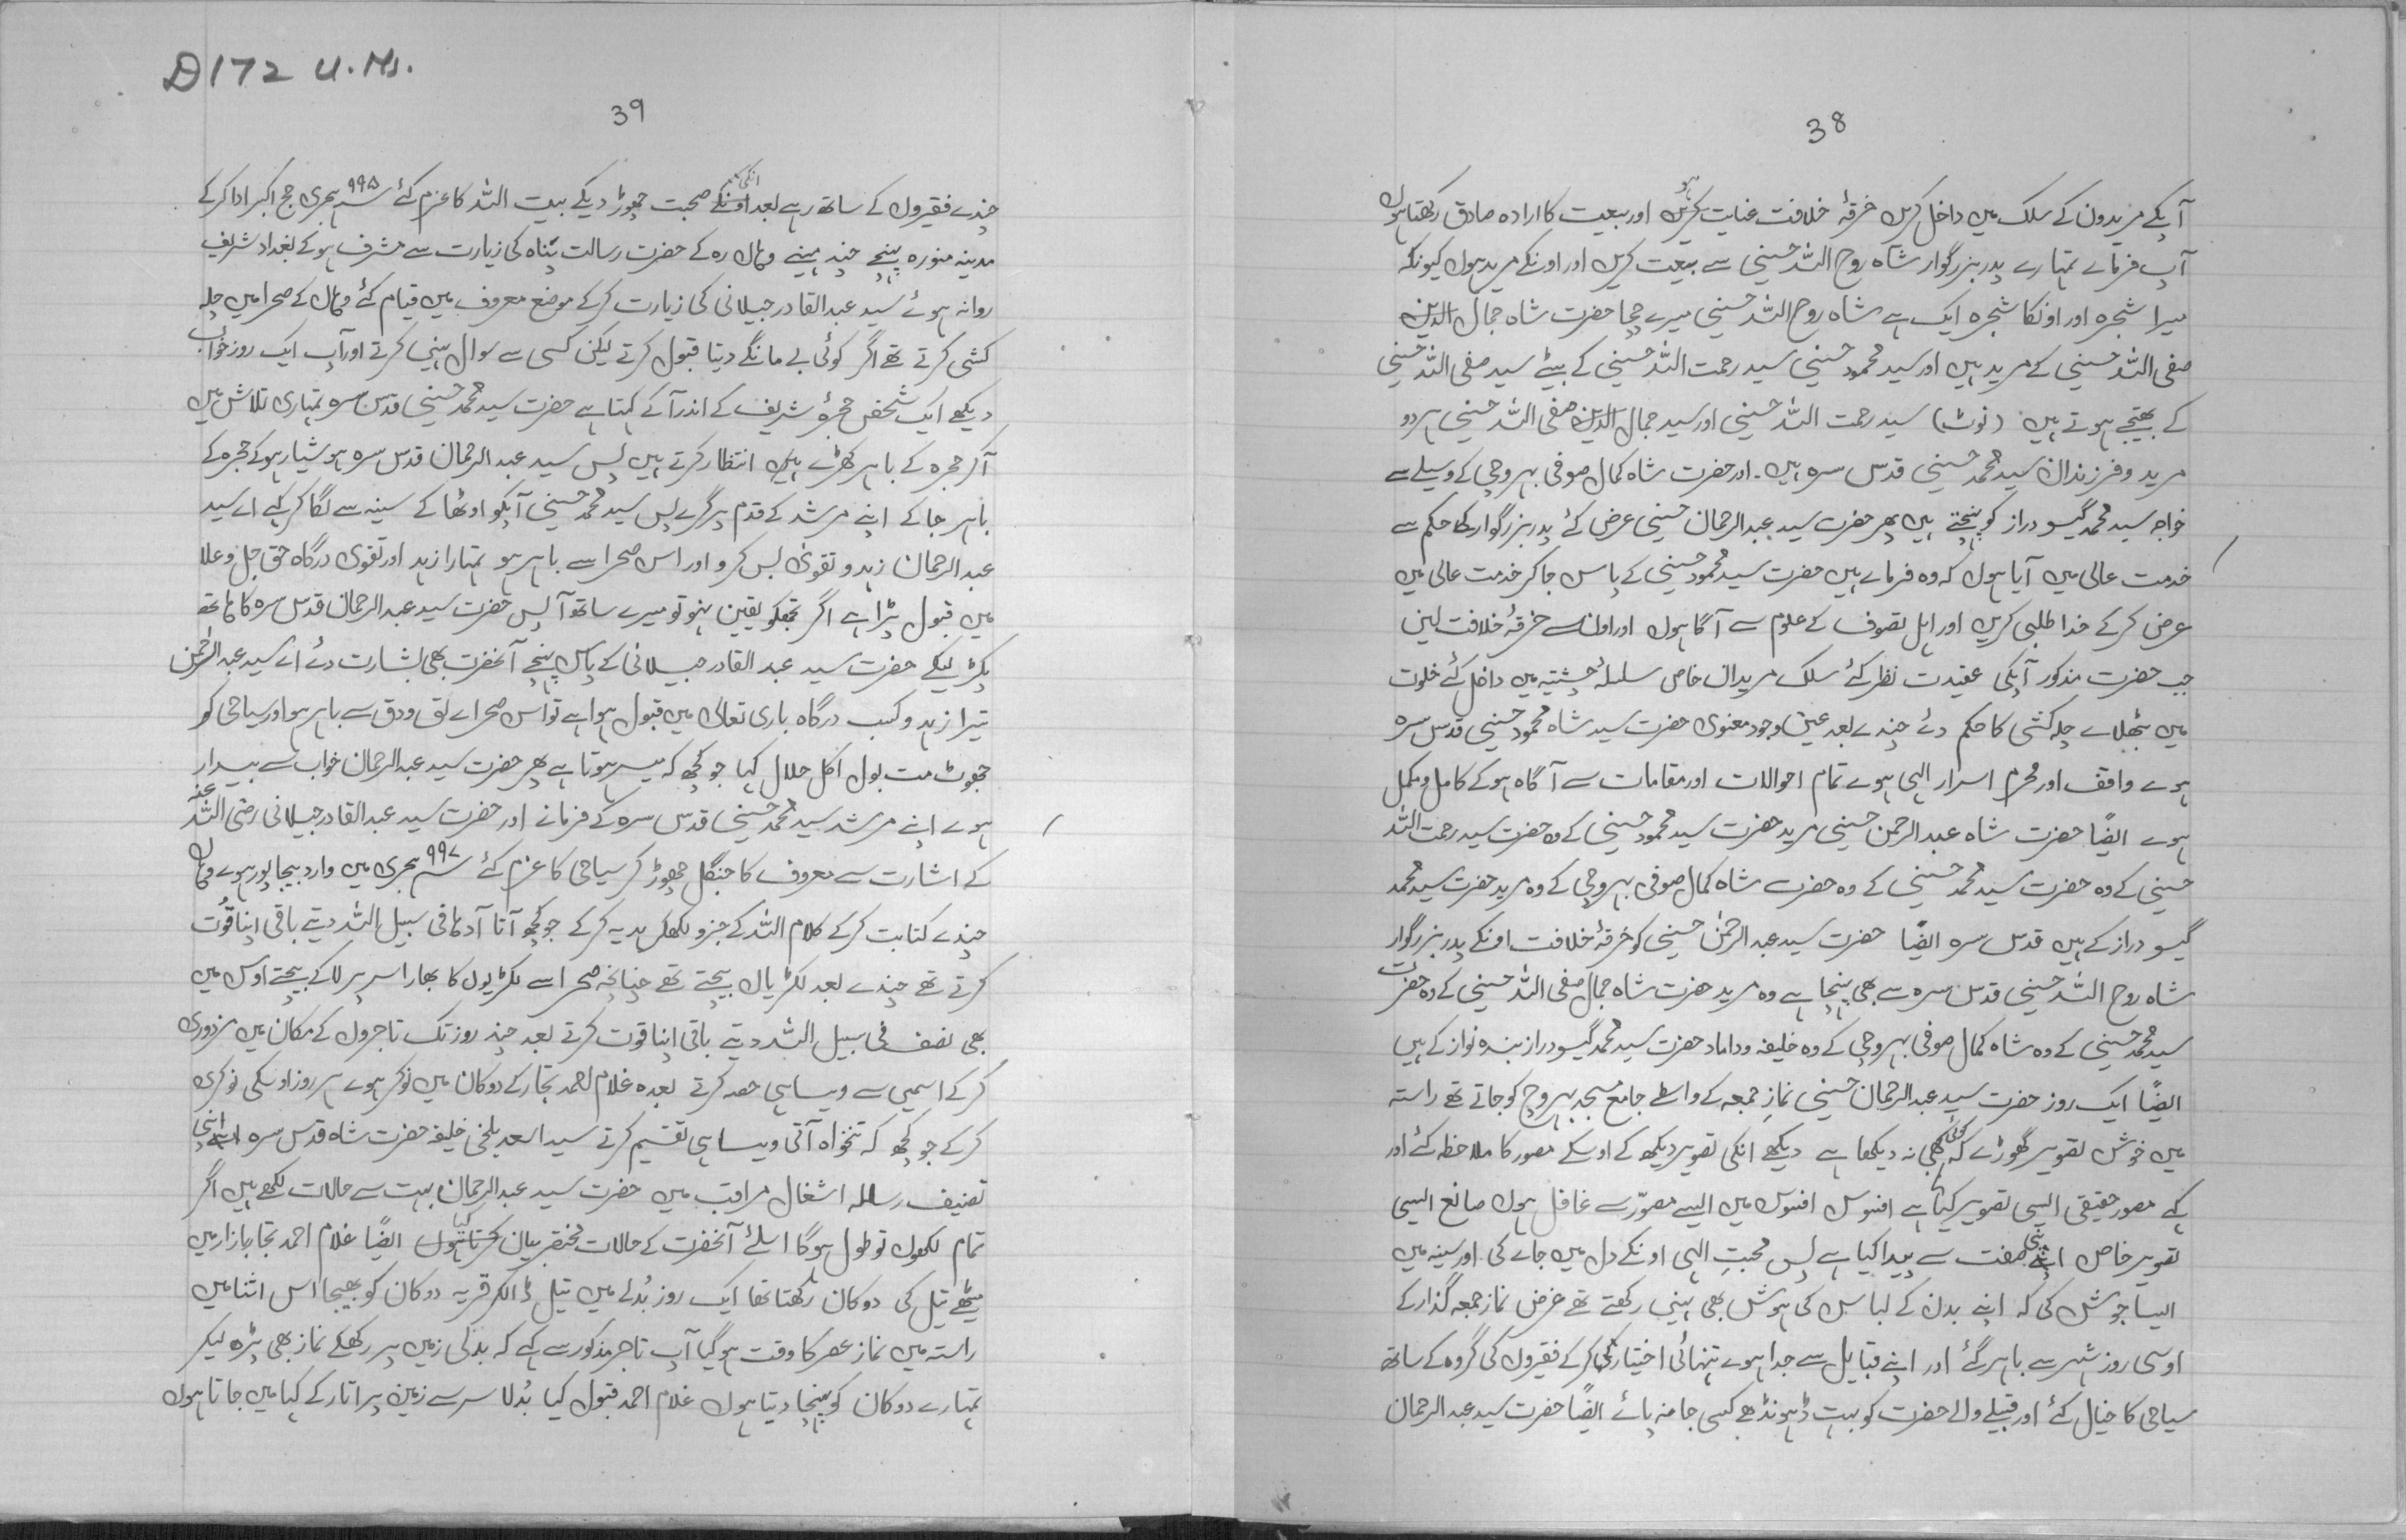 38
آپکے مریدون کے سلک میں داخل کریں خرقۂ خلافت عنایت کریں اور بیعت کا ارادہ صادق رکھتا ہوں
آپ فرماے تمہارے پدر بزرگوار شاہ روح اللہ حسینی سے بیعت کریں اور اونکے مرید ہوں کیونکہ
میرا شجرہ اور اونکا شجرہ ایک ہے شاہ روح اللہ حسینی میرے چچا حضرت شاہ جمال الدین
صفی اللہ حسینی کے مرید ہیں اور سید محمود حسینی سید رحمت اللہ حسینی کے بیٹے سید صفی اللہ حسینی
کے بھتیجے ہوتے ہیں (نوٹ) سید رحمت اللہ حسینی اور سید جمال الدین صفی اللہ حسینی ہر دو
مرید و فرزندان سید محمد حسینی قدس سرہ ہیں۔ اور حضرت شاہ کمال صوفی بہروچی کے وسیلے سے
خواجہ سید محمد گیسو دراز کو پہنچتے ہیں پھر حضرت سید عبدالرحمان حسینی عرض کئے پدر بزرگوار کا حکم سے
خدمت عالی میں آیا ہوں کہ وہ فرماے ہیں حضرت سید محمود حسینی کے پاس جا کر خدمت عالی میں
عرض کر کے خدا طلبی کریں اور اہل تصوف کے علوم سے آگا ہوں اور اون سے خرقۂ خلافت لیں
جب حضرت مذکور آپکی عقیدت نظر کئے سلک مریدان خاص سلسلۂ چشتیہ میں داخل کئے خلوت
میں بٹھلاے چلہ کشی کا حکم دئے چندے بعد عین وجود معنوی حضرت سید شاہ محمود حسینی قدس سرہ
ہوے واقف اور محرم اسرار الہی ہوے تمام احوالات اور مقامات سے آگاہ ہو کے کامل و مکمل
ہوے ایضًا حضرت شاہ عبدالرحمن حسینی مرید حضرت سید محمود حسینی کے وہ حضرت سید رحمت اللہ
حسینی کے وہ حضرت سید محمد حسینی کے وہ حضرت شاہ کمال صوفی بہروچی کے وہ مرید حضرت سید محمد
گیسو دراز کے ہیں قدس سرہ ایضًا حضرت سید عبدالرحمٰن حسینی کو خرقۂ خلافت اونکے پدر بزرگوار
شاہ روح اللہ حسینی قدس سرہ سے بھی پہنچا ہے وہ مرید حضرت شاہ جمال صفی اللہ حسینی کے وہ حضرت
سید محمد حسینی کے وہ شاہ کمال صوفی بہروچی کے وہ خلیفہ و داماد حضرت سید محمد گیسو دراز بندہ نواز کے ہیں
ایضًا ایک روز حضرت سید عبدالرحمان حسینی نمازِ جمعہ کے واسطے جامع مسجد بہروچ کو جاتے تھے راستہ
میں خوش تصویر گھوڑے کہ کوئی کبھی نہ دیکھا ہے دیکھے انکی تصویر دیکھ کے اوسکے مصور کا ملاحظہ کئے اور
کہے مصور حقیقی ایسی تصویر کیا ہے افسوس افسوس میں ایسے مصوّر سے غافل ہوں صانع ایسی
تصویر خاص اپنی صفت سے پیدا کیا ہے پس محبتِ الہی اونکے دل میں جاے کی اور سینہ میں
ایسا جوش کی کہ اپنے بدن کے لباس کی ہوش بھی نہیں رکھتے تھے غرض نماز جمعہ گذار کے
اوسی روز شہر سے باہر گئے اور اپنے قبایل سے جدا ہوے تنہائی اختیار کر کے فقیروں کی گروہ کے ساتھ
سیاحی کا خیال کئے اور قبیلے والے حضرت کو بہت ڈہونڈھے کسی جا نہ پائے ایضًا حضرت سید عبدالرحمان
D172 U.Ms.
39
چندے فقیروں کے ساتھ رہے بعد اونکے انکی صحبت چھوڑ دیکے بیت اللہ کا عزم کئے سنہ ۹۹۵ ہجری حج اکبر ادا کر کے
مدینہ منورہ پہنچے چند مہینے وہاں رہ کے حضرت رسالت پناہ کی زیارت سے مشرف ہو کے بغداد شریف
روانہ ہوئے سید عبدالقادر جیلانی کی زیارت کر کے موضع معروف میں قیام کئے وہاں کے صحرا میں چلہ
کشی کرتے تھے اگر کوئی بے مانگے دیتا قبول کرتے لیکن کسی سے سوال نہیں کرتے اور آپ ایک روز خواب
دیکھے ایک شخص حجرۂ شریف کے اندر آ کے کہتا ہے حضرت سید محمد حسینی قدس سرہ تمہاری تلاش میں
آ کر حجرہ کے باہر کھڑے ہیں انتظار کرتے ہیں پس سید عبدالرحمان قدس سرہ ہوشیار ہو کے حجرہ کے
باہر جا کے اپنے مرشد کے قدم پر گرے پس سید محمد حسینی آپکو اوٹھا کے سینہ سے لگا کر کہے اے سید
عبدالرحمان زہد و تقویٰ بس کرو اور اس صحرا سے باہر ہو تمہارا زہد اور تقویٰ درگاہ حق جل و علا
میں قبول پڑا ہے اگر تجھکو یقین نہو تو میرے ساتھ آ پس حضرت سید عبدالرحمان قدس سرہ کا ہاتھ
پکڑ لیکے حضرت سید عبدالقادر جیلانی کے پاس پہنچے آنحضرت بھی بشارت دئے اے سید عبدالرحمٰن
تیرا زہد و کسب درگاہ باری تعالیٰ میں قبول ہوا ہے تو اس صحراے لق و دق سے باہر ہو اور سیاحی کر
جھوٹ مت بول اکل حلال کہا جو کچھ کہ میسر ہوتا ہے پھر حضرت سید عبدالرحمان خواب سے بیدار
ہوے اپنے مرشد سید محمد حسینی قدس سرہ کے فرمانے اور حضرت سید عبدالقادر جیلانی رضی اللہ عنہ
کے اشارت سے معروف کا جنگل چھوڑ کر سیاحی کا عزم کئے سنہ ۹۹۷ ہجری میں وارد بیجاپور ہوے وہاں
چندے کتابت کر کے کلام اللہ کے جزو لکھکر ہدیہ کر کے جو کچھ آتا آدھا فی سبیل اللہ دیتے باقی اپنا قُوت
کرتے تھے چندے بعد لکڑیاں بیچتے تھے چنانچہ صحرا سے لکڑیوں کا بھارا سر پر لا کے بیچتے اوس میں
بھی نصف فی سبیل اللہ دیتے باقی اپنا قوت کرتے بعد چند روز تک تاجروں کے مکان میں مزدوری
کر کے اسمیں سے ویسا ہی حصہ کرتے بعدہ غلام احمد تجار کے دوکان میں نوکر ہوے ہر روز اوسکی نوکری
کر کے جو کچھ کہ تنخواہ آتی ویسا ہی تقسیم کرتے سید اسعد بلخی خلیفہ حضرت شاہ قدس سرہ اپنی
تصنیف رسالہ اشغال مراقبہ میں حضرت سید عبدالرحمان بہت سے حالات لکھے ہیں اگر
تمام لکھوں تو طول ہوگا اسلئے آنحضرت کے حالات مختصر بیان کرتا ہوں ایضًا غلام احمد تجار بازار میں
میٹھے تیل کی دوکان رکھتا تھا ایک روز بُدلے میں تیل ڈالکر قریہ دوکان کو بھیجا اس اثنا میں
راستہ میں نماز عصر کا وقت ہو گیا آپ تاجر مذکور سے کہے کہ بدلی زمین پر رکھکے نماز بھی پڑہ لیکر
تمہارے دوکان کو پہنچا دیتا ہوں غلام احمد قبول کیا بُدلا سر سے زمین پر اتار کے کہا میں جاتا ہوں